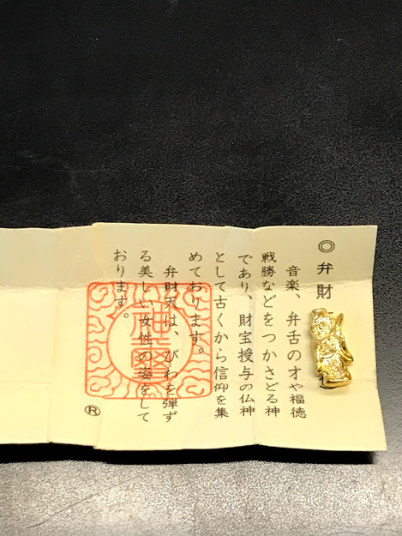 ◎弁財
音楽、弁舌の才や福徳
戦勝などをつかさどる神
であり、財宝授与の仏神
として古くから信仰を集
めております。
弁財天は、びわを弾ず
る美しい女性の姿をして
おります。
®